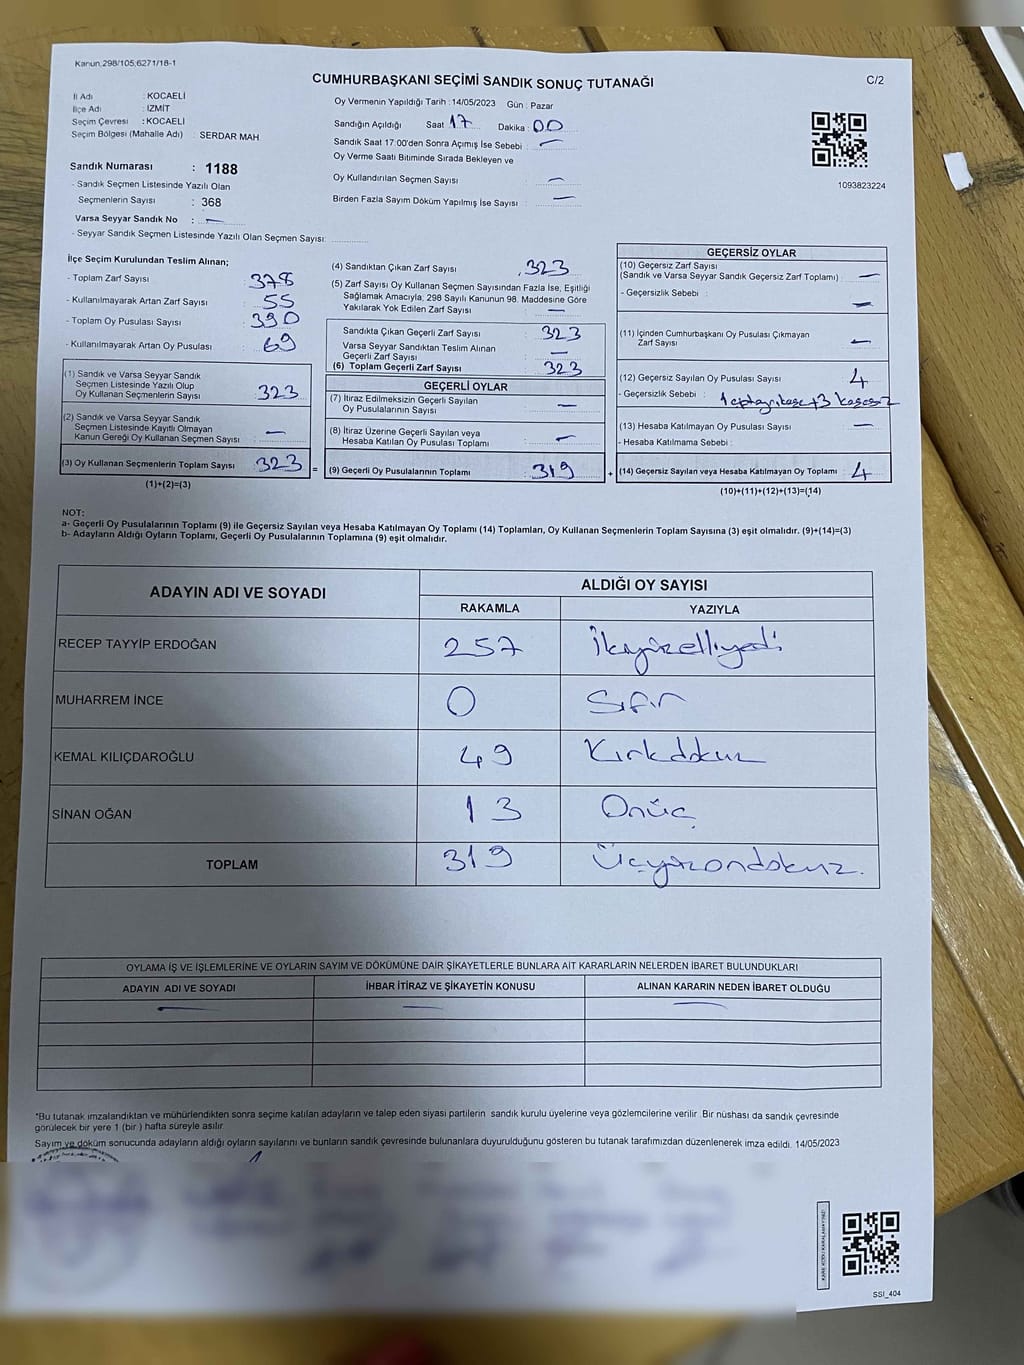 Kanun 298/105,6271/18-1
CUMHURBAŞKANI SEÇİMİ SANDIK SONUÇ TUTANAĞI
C/2
İl Adı : KOCAELİ
İlçe Adı : İZMİT
Seçim Çevresi : KOCAELİ
Seçim Bölgesi (Mahalle Adı) : SERDAR MAH
Sandık Numarası : 1188
- Sandık Seçmen Listesinde Yazılı Olan
Seçmenlerin Sayısı : 368
Varsa Seyyar Sandık No : —
- Seyyar Sandık Seçmen Listesinde Yazılı Olan Seçmen Sayısı:
Oy Vermenin Yapıldığı Tarih : 14/05/2023 Gün : Pazar
Sandığın Açıldığı Saat 17 Dakika : 00
Sandık Saat 17:00'den Sonra Açımış İse Sebebi : —
Oy Verme Saati Bitiminde Sırada Bekleyen ve
Oy Kullandırılan Seçmen Sayısı : —
Birden Fazla Sayım Döküm Yapılmış İse Sayısı : —
1093823224
İlçe Seçim Kurulundan Teslim Alınan;
- Toplam Zarf Sayısı : 378
- Kullanılmayarak Artan Zarf Sayısı : 55
- Toplam Oy Pusulası Sayısı : 390
- Kullanılmayarak Artan Oy Pusulası : 69
(1) Sandık ve Varsa Seyyar Sandık
Seçmen Listesinde Yazılı Olup
Oy Kullanan Seçmenlerin Sayısı : 323
(2) Sandık ve Varsa Seyyar Sandık
Seçmen Listesinde Kayıtlı Olmayan
Kanun Gereği Oy Kullanan Seçmen Sayısı : —
(3) Oy Kullanan Seçmenlerin Toplam Sayısı : 323 =
(1)+(2)=(3)
(4) Sandıktan Çıkan Zarf Sayısı : 323
(5) Zarf Sayısı Oy Kullanan Seçmen Sayısından Fazla İse, Eşitliği
Sağlamak Amacıyla; 298 Sayılı Kanunun 98. Maddesine Göre
Yakılarak Yok Edilen Zarf Sayısı : —
Sandıkta Çıkan Geçerli Zarf Sayısı : 323
Varsa Seyyar Sandıktan Teslim Alınan
Geçerli Zarf Sayısı : —
(6) Toplam Geçerli Zarf Sayısı : 323
GEÇERLİ OYLAR
(7) İtiraz Edilmeksizin Geçerli Sayılan
Oy Pusulalarının Sayısı : —
(8) İtiraz Üzerine Geçerli Sayılan veya
Hesaba Katılan Oy Pusulası Toplamı : —
(9) Geçerli Oy Pusulalarının Toplamı : 319 +
GEÇERSİZ OYLAR
(10) Geçersiz Zarf Sayısı
(Sandık ve Varsa Seyyar Sandık Geçersiz Zarf Toplamı) : —
- Geçersizlik Sebebi : —
(11) İçinden Cumhurbaşkanı Oy Pusulası Çıkmayan
Zarf Sayısı : —
(12) Geçersiz Sayılan Oy Pusulası Sayısı : 4
- Geçersizlik Sebebi :
(13) Hesaba Katılmayan Oy Pusulası Sayısı : —
- Hesaba Katılmama Sebebi :
(14) Geçersiz Sayılan veya Hesaba Katılmayan Oy Toplamı : 4
(10)+(11)+(12)+(13)=(14)
NOT:
a- Geçerli Oy Pusulalarının Toplamı (9) ile Geçersiz Sayılan veya Hesaba Katılmayan Oy Toplamı (14) Toplamları, Oy Kullanan Seçmenlerin Toplam Sayısına (3) eşit olmalıdır. (9)+(14)=(3)
b- Adayların Aldığı Oyların Toplamı, Geçerli Oy Pusulalarının Toplamına (9) eşit olmalıdır.
ADAYIN ADI VE SOYADI ALDIĞI OY SAYISI
RAKAMLA YAZIYLA
RECEP TAYYİP ERDOĞAN 257 İkiyüzelliyedi
MUHARREM İNCE 0 Sıfır
KEMAL KILIÇDAROĞLU 49 Kırkdokuz
SİNAN OĞAN 13 Onüç
TOPLAM 319 Üçyüzondokuz.
OYLAMA İŞ VE İŞLEMLERİNE VE OYLARIN SAYIM VE DÖKÜMÜNE DAİR ŞİKAYETLERLE BUNLARA AİT KARARLARIN NELERDEN İBARET BULUNDUKLARI
ADAYIN ADI VE SOYADI İHBAR İTİRAZ VE ŞİKAYETİN KONUSU ALINAN KARARIN NEDEN İBARET OLDUĞU
— — —
*Bu tutanak imzalandıktan ve mühürlendikten sonra seçime katılan adayların ve talep eden siyasi partilerin sandık kurulu üyelerine veya gözlemcilerine verilir. Bir nüshası da sandık çevresinde
görülecek bir yere 1 (bir ) hafta süreyle asılır.
Sayım ve döküm sonucunda adayların aldığı oyların sayılarını ve bunların sandık çevresinde bulunanlara duyurulduğunu gösteren bu tutanak tarafımızdan düzenlenerek imza edildi. 14/05/2023
KARE KODU KARALAMAYINIZ!
SSI_404